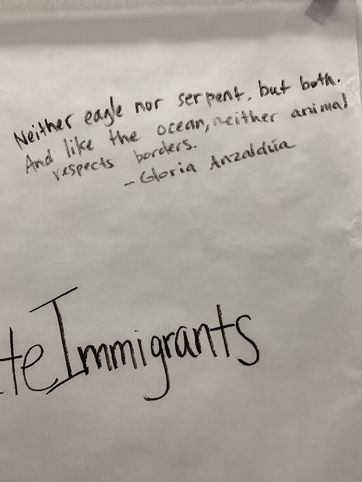 Neither eagle nor serpent, but both.
And like the ocean, neither animal
respects borders.
- Gloria Anzaldúa
te Immigrants